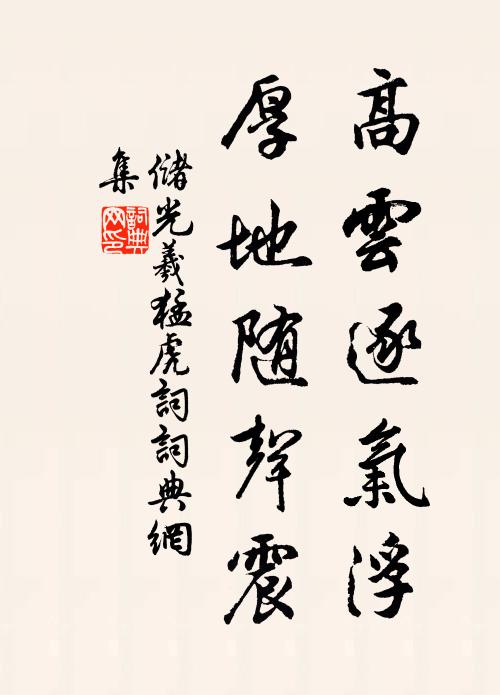 高雲逐氣浮
厚地随聲震
儲光羲猛虎詞詞典網
集
詞典
网印